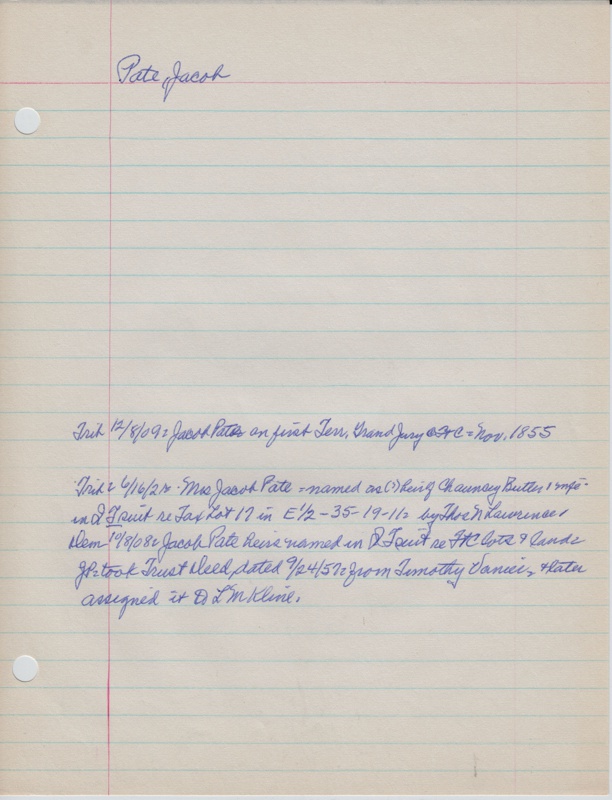 Pate, Jacob
Trib 12/8/09= Jacob Pate on first Terr. Grand Jury @ Ft C = Nov. 1855
Trib= 6/16/2 Mrs Jacob Pate = named as (?) heir of Chauncey Butler & wife
in Q T suit re Tax Lot 17 in E 1/2 - 35-19-11= by Thos N Lawrence,
Dem 10/8/08= Jacob Pate heirs named in Q T suit re Ft C lots & lands
JP= took Trust Deed, dated 9/24/57= from Timothy & later
assigned it to L M Kline.